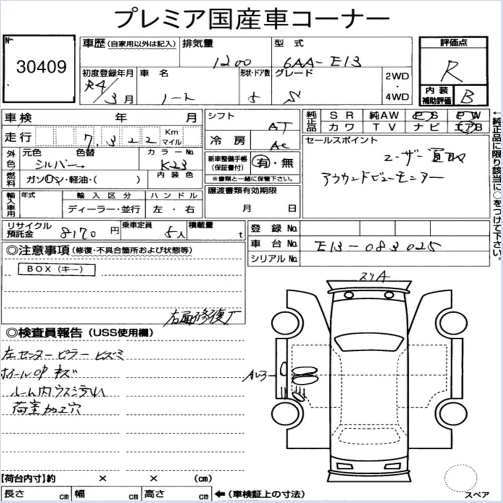 プレミア国産車コーナー
No.
30409
車歴 (自家用以外は記入)
排気量
1200
型式
6AA-E13
評価点
R
内装 補助評価 B
初度登録年月
R4/3月
車名
ノート
形状・ドア数
5
グレード
S
2WD
・
4WD
車検 年 月
走行 7,322 Km マイル
シフト AT
冷房 AC
純正品 SR 純AW PS PW
カワ TV ナビ エアB
←純正品に限り該当に○をつけて下さい。
外色 元色 色替
シルバー
カラーNo.
K23
燃料 ガソリン・軽油・( )
内装色
新車整備手帳 (保証書付) 有・無
※書類と一緒にして下さい。
セールスポイント
ユーザー買取
アラウンドビューモニター
輸入車用 年式 輸入区分 ハンドル
ディーラー・並行 左・右
譲渡書類有効期限
月 日
リサイクル預託金 8170 円
乗車定員 5人
積載量 t
登録No.
車台No. E13-083025
シリアルNo.
◎注意事項 (修復・不具合箇所および状態等)
BOX (キー)
右面修復有
◎検査員報告 (USS使用欄)
左センターピラー ヒズミ
ホイールCAP キズ
ルーム内ウス汚れ
荷室加工穴
スリA
【荷台内寸】約 × × (cm)
長さ cm 幅 cm 高さ cm
←(車検証上の寸法)
スペア